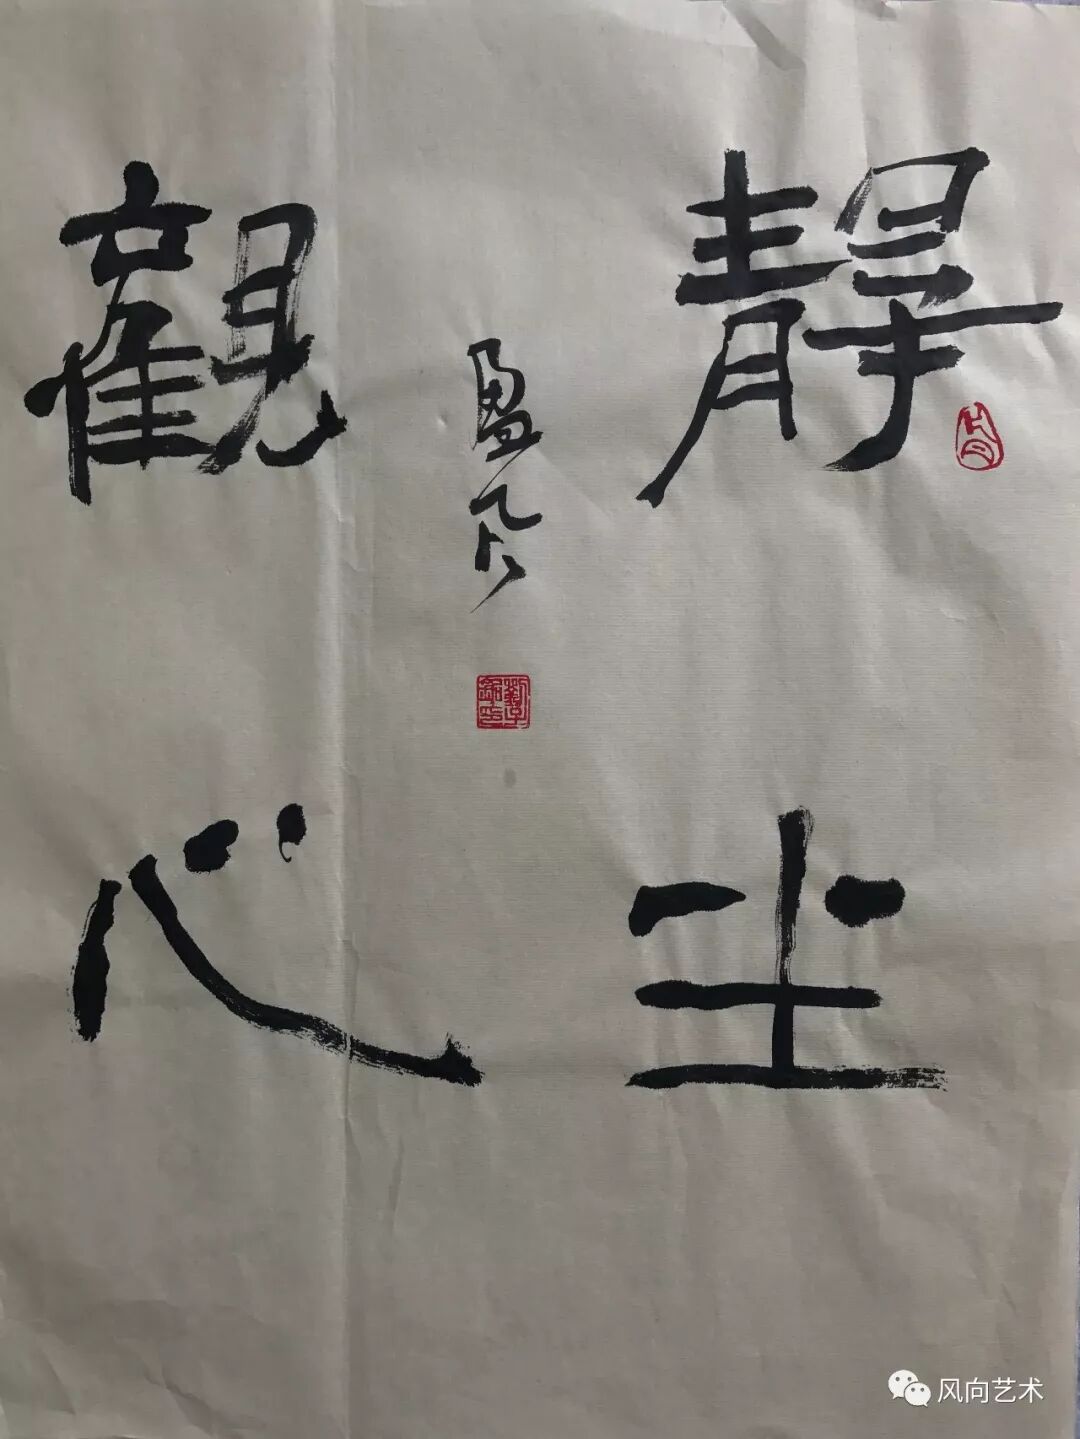 靜坐
觀心
风向艺术